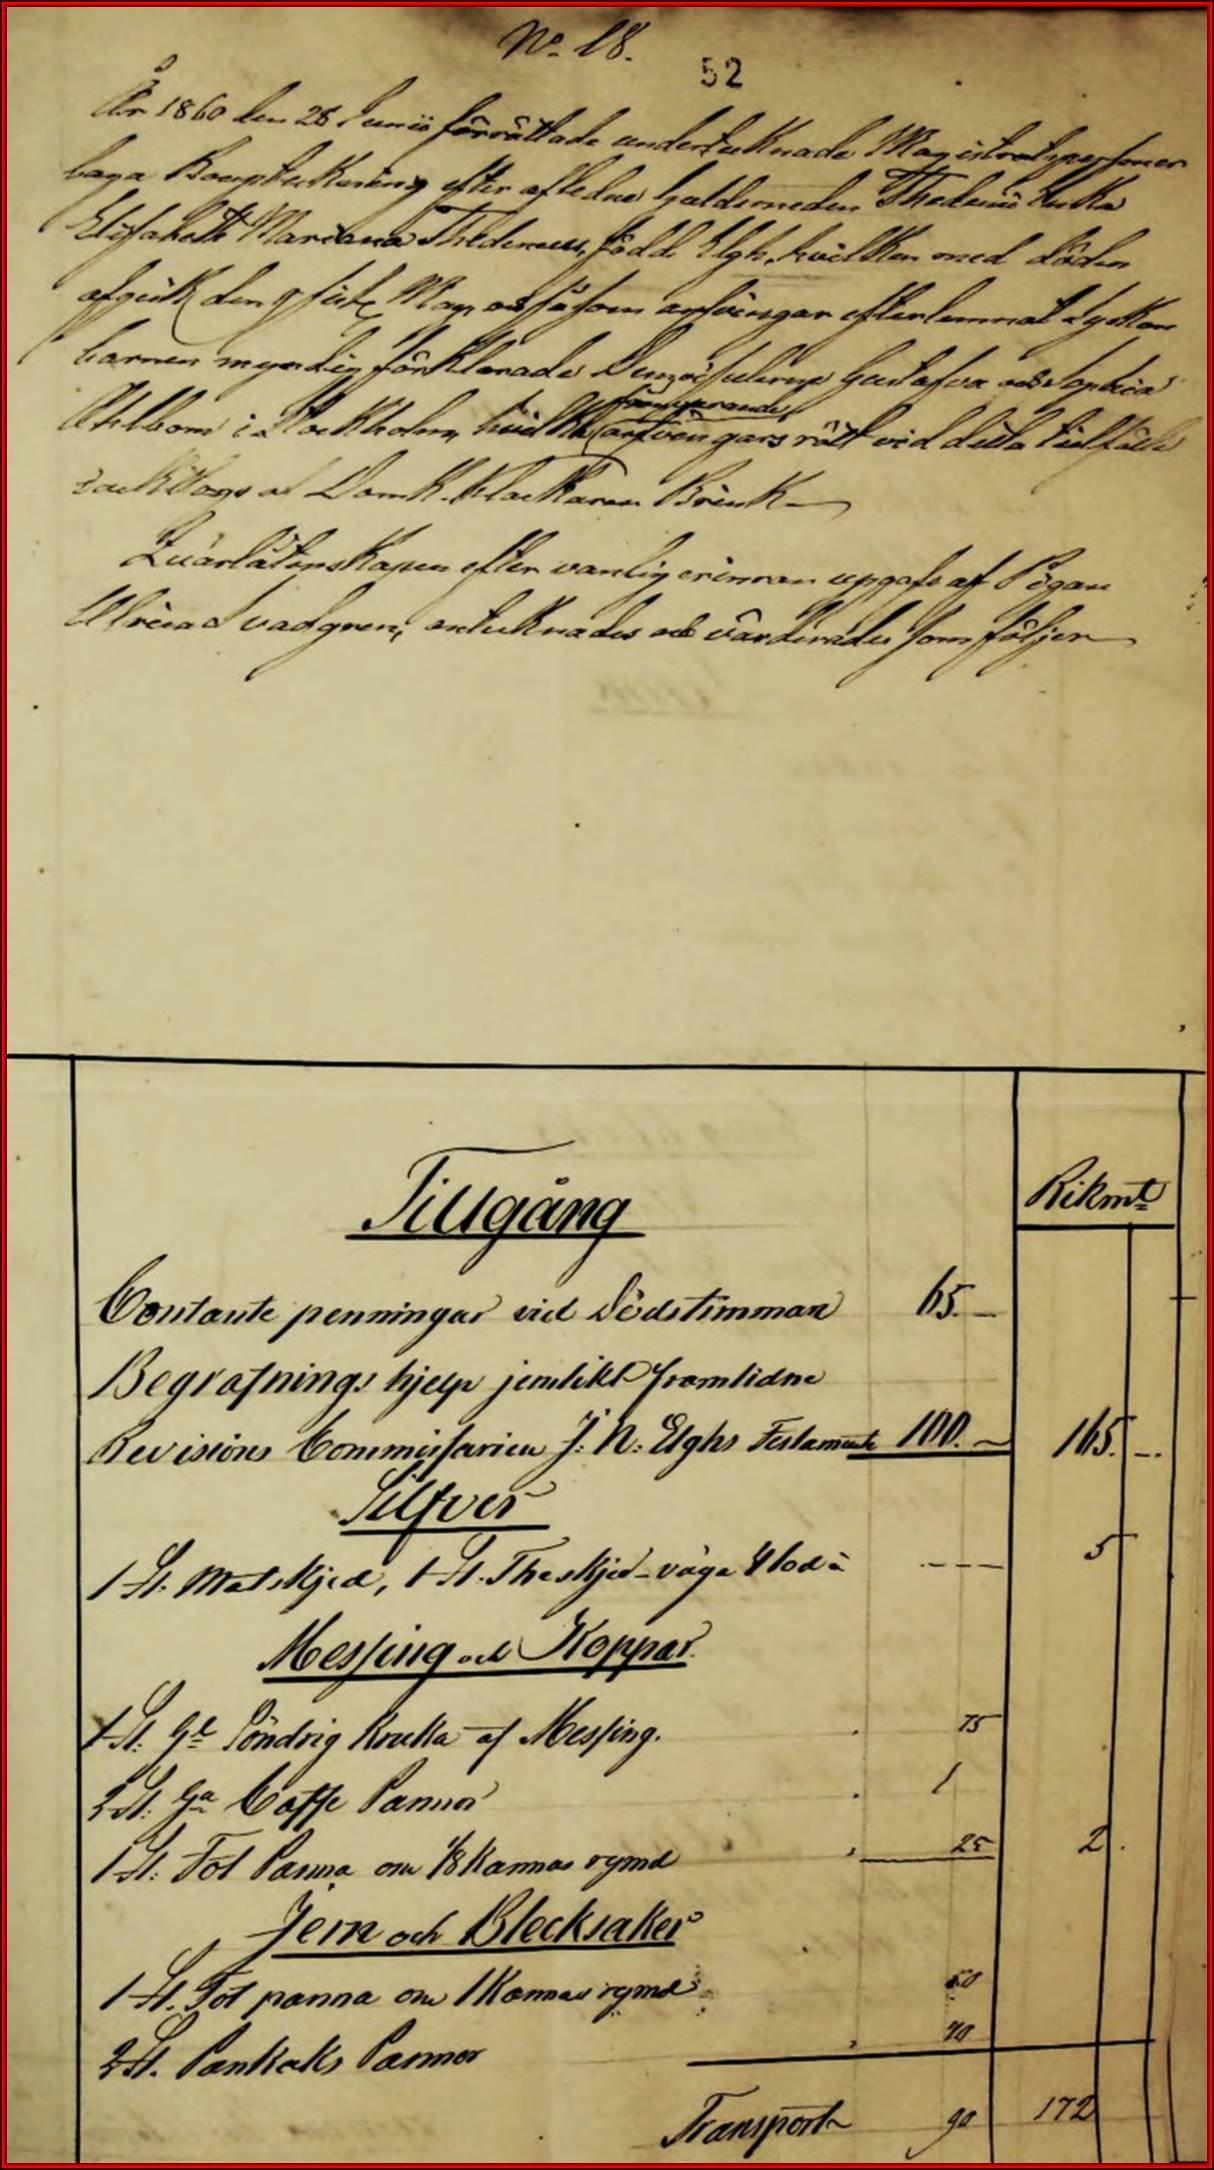 No. 18.
52
År 1860 den 28 Junii förrättade undertecknade Magistratspersoner
laga Bouptekning efter aflidne Guldsmeden Thedenii Enka
Elisabeth Mariana Thedenius, född Elgh, hvilken med döden
afgick den 9 sistl. May och såsom arfvingar efterlemnat Syskon
barnen myndig förklarade Demoiselerne Gustafva och Sophia
Ahlbom i Stockholm, hvilka
frånvarande
arfvingars rätt vid detta tillfälle
iackttogs af Domk. Klockaren Brink
Qvarlåtenskapen efter vanlig erinran uppgafs af Pigan
Ulrica Svadgren, antecknades och värderades som följer
Tillgång
Rikmt
Contante penningar vid Dödstimman 65. —
Begrafnings hjelp jemlikt framlidne
Revisions Commissarien J. N. Elghs Testamente 100. — 165. —.
Silfver
1 St. Matskjed, 1 St. Theskjed - väga 4 lod à - - - - 5
Messing och Koppar
1 St. Gl Söndrig Kruka af Messing. . 75
2 St. Ga Caffe Pannor . 1
1 St. Fot Panna om 1/8 Kannas rymd , 25 2.
Jern och Blecksaker
1 St. Fot panna om 1 Kannas rymd 50
2 St. Pankaks Pannor , 40
Transport 90 172